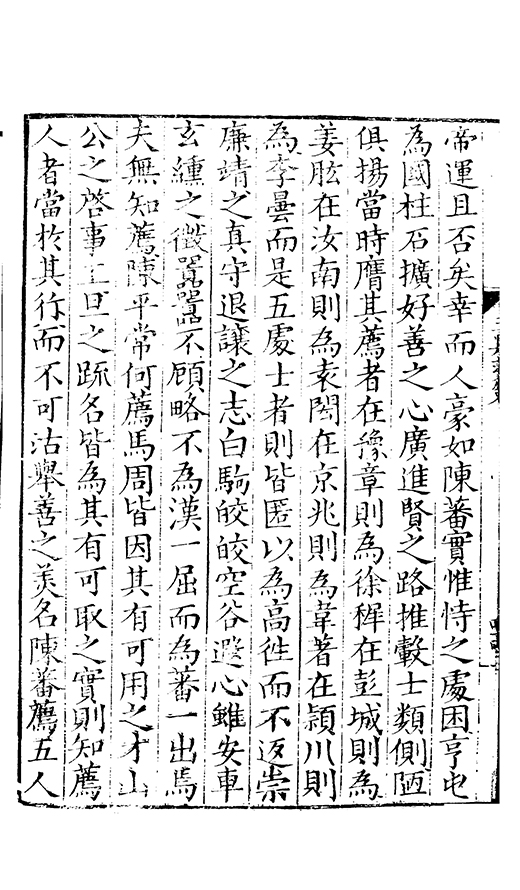 帝運且否矣幸而人豪如陳蕃實惟恃之處困亨屯
為國柱石擴好善之心廣進賢之路推轂士類側陋
俱揚當時膺其薦者在豫章則為徐穉在彭城則為
姜肱在汝南則為袁閎在京兆則為韋著在潁川則
為李曇而是五處士者則皆匿以為高徃而不返崇
廉靖之真守退讓之志白駒皎皎空谷遐心雖安車
玄纁之徵嚚嚚不顧略不為漢一屈而為蕃一出焉
夫無知薦陳平常何薦馬周皆因其有可用之才山
公之啓事王旦之䟽名皆為其有可取之實則知薦
人者當於其行而不可沽舉善之美名陳蕃薦五人